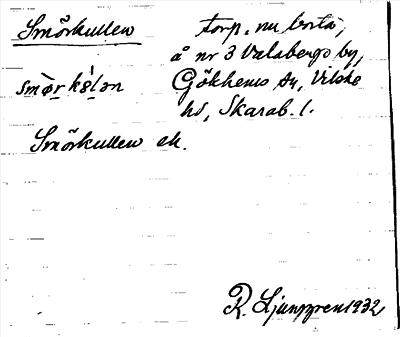 Smörkullen
torp, nu borta,
å nr 3 Valabergs by,
Gökhems sn, Vilske
hd, Skarab. l.
smø̀r kɵ́lən
Smörkullen ek.
R. Ljunggren 1932